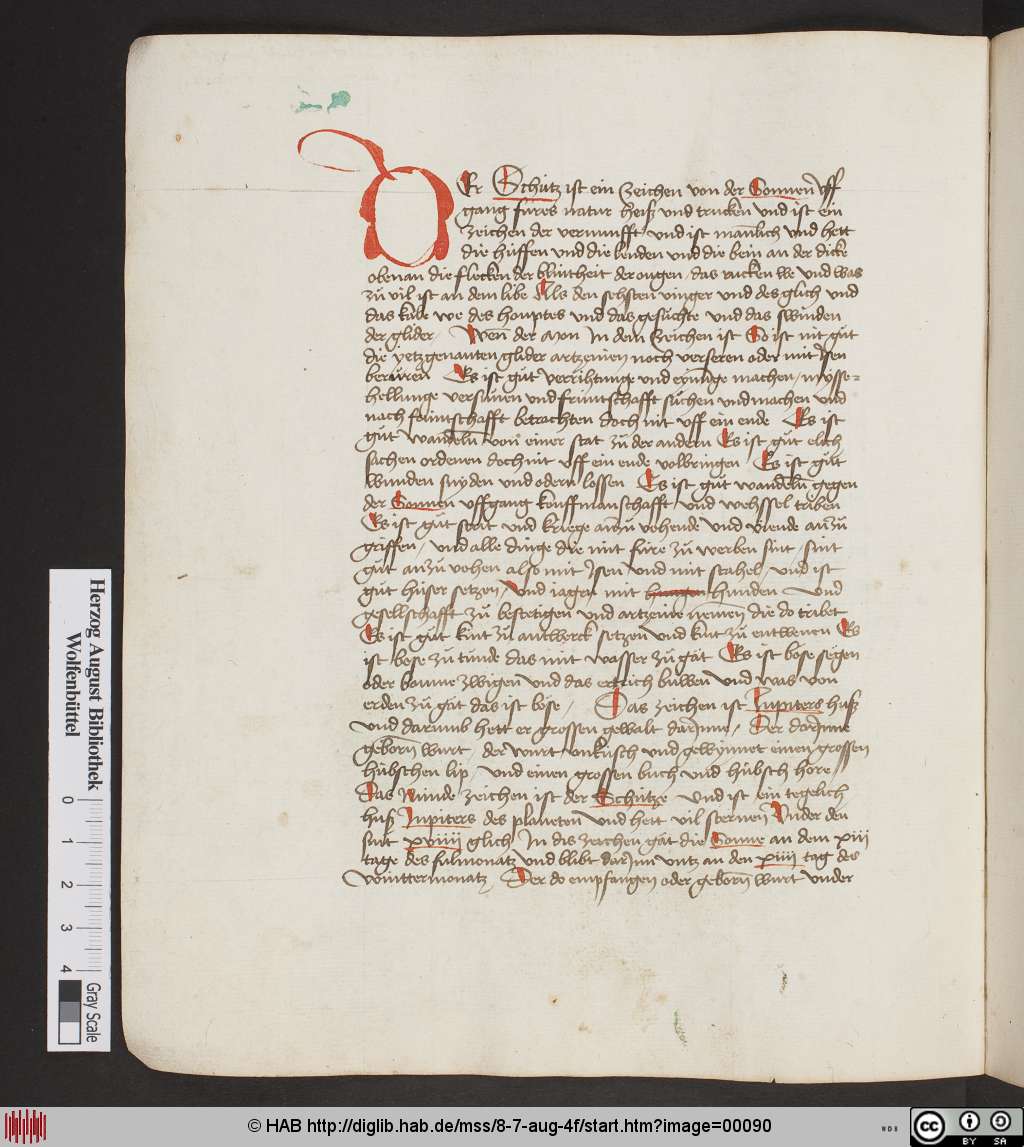 DEr Schütz ist ein Zeichen von der Sonnen vff
gang fures natur heisz vnd trucken vnd ist ein
zeichen der vernunfft vnd ist mānlich vnd hett
die hüffen vnd die lenden vnd die bein an der dicke
oben an die flecken der blintheit der ougen das rucken we vnd was
zü vil ist an dem libe Als den sehsten vinger vnd des glich vnd
das kale we des houptes vnd das gesüchte vnd das swinden
der glider Wen̄ der mon In dem zeichen ist So ist nit güt
die yetzgenanten glider artzenien noch verseren oder mit ysen
berüren Es ist güt verrihtunge vnd eynunge machen mysse=
hellunge versünen vnd früntschafft süchen vnd machen vnd
nach früntschafft betrachten doch nit vff ein ende Es ist
güt wandeln von einer stat zü der andern Es ist güt elich
sachen ordenen doch nit vff ein ende volbringen Es ist güt
wunden snyden vnd odern lossen Es ist güt wandeln gegen
der Sonnen vffgang kouffmanschafft vnd wehssel triben
Es ist güt strit vnd kriege anzü vohende vnd viende an zü
griffen vnd alle dinge die mit füre zü werben sint sint
güt anzü vohen also mit ysen vnd mit stahel vnd ist
güt hüser setzen vnd iagen mit hunden vnd
gesellschafft zü bestetigen vnd artzenie nemen die do tribet
Es ist güt kint zü antwerck setzen vnd kint zü entwenen Es
ist böse zü tünde das mit wasser zü gat Es ist böse segen
oder boume zwigen vnd das ertrich buwen vnd was von
erden zü gat das ist böse Das zeichen ist Jupiters husz
vnd darumb hett er grossen gewalt dar Inne Der dorInne
geborn wurt der wurt vnküsch vnd gewynnet einen grossen
hübschen lip vnd einen grossen buch vnd hübsch hore
Das Nünde zeichen ist der Schütze Vnd ist ein tegelich
husz Jupiters des planeten vnd hett vil sternen Vnder den
sint xviiij glich In dis zeichen gat die Sonne an dem xiij
tage des fulmonatz vnd blibt darInn vntz an den xiiij tag des
wintermonatz Der do empfangen oder geborn wurt vnder
Herzog August Bibliothek
Wolfenbüttel
0 1 2 3 4
Gray Scale
© HAB http://diglib.hab.de/mss/8-7-aug-4f/start.htm?image=00090
WDB
cc BY SA